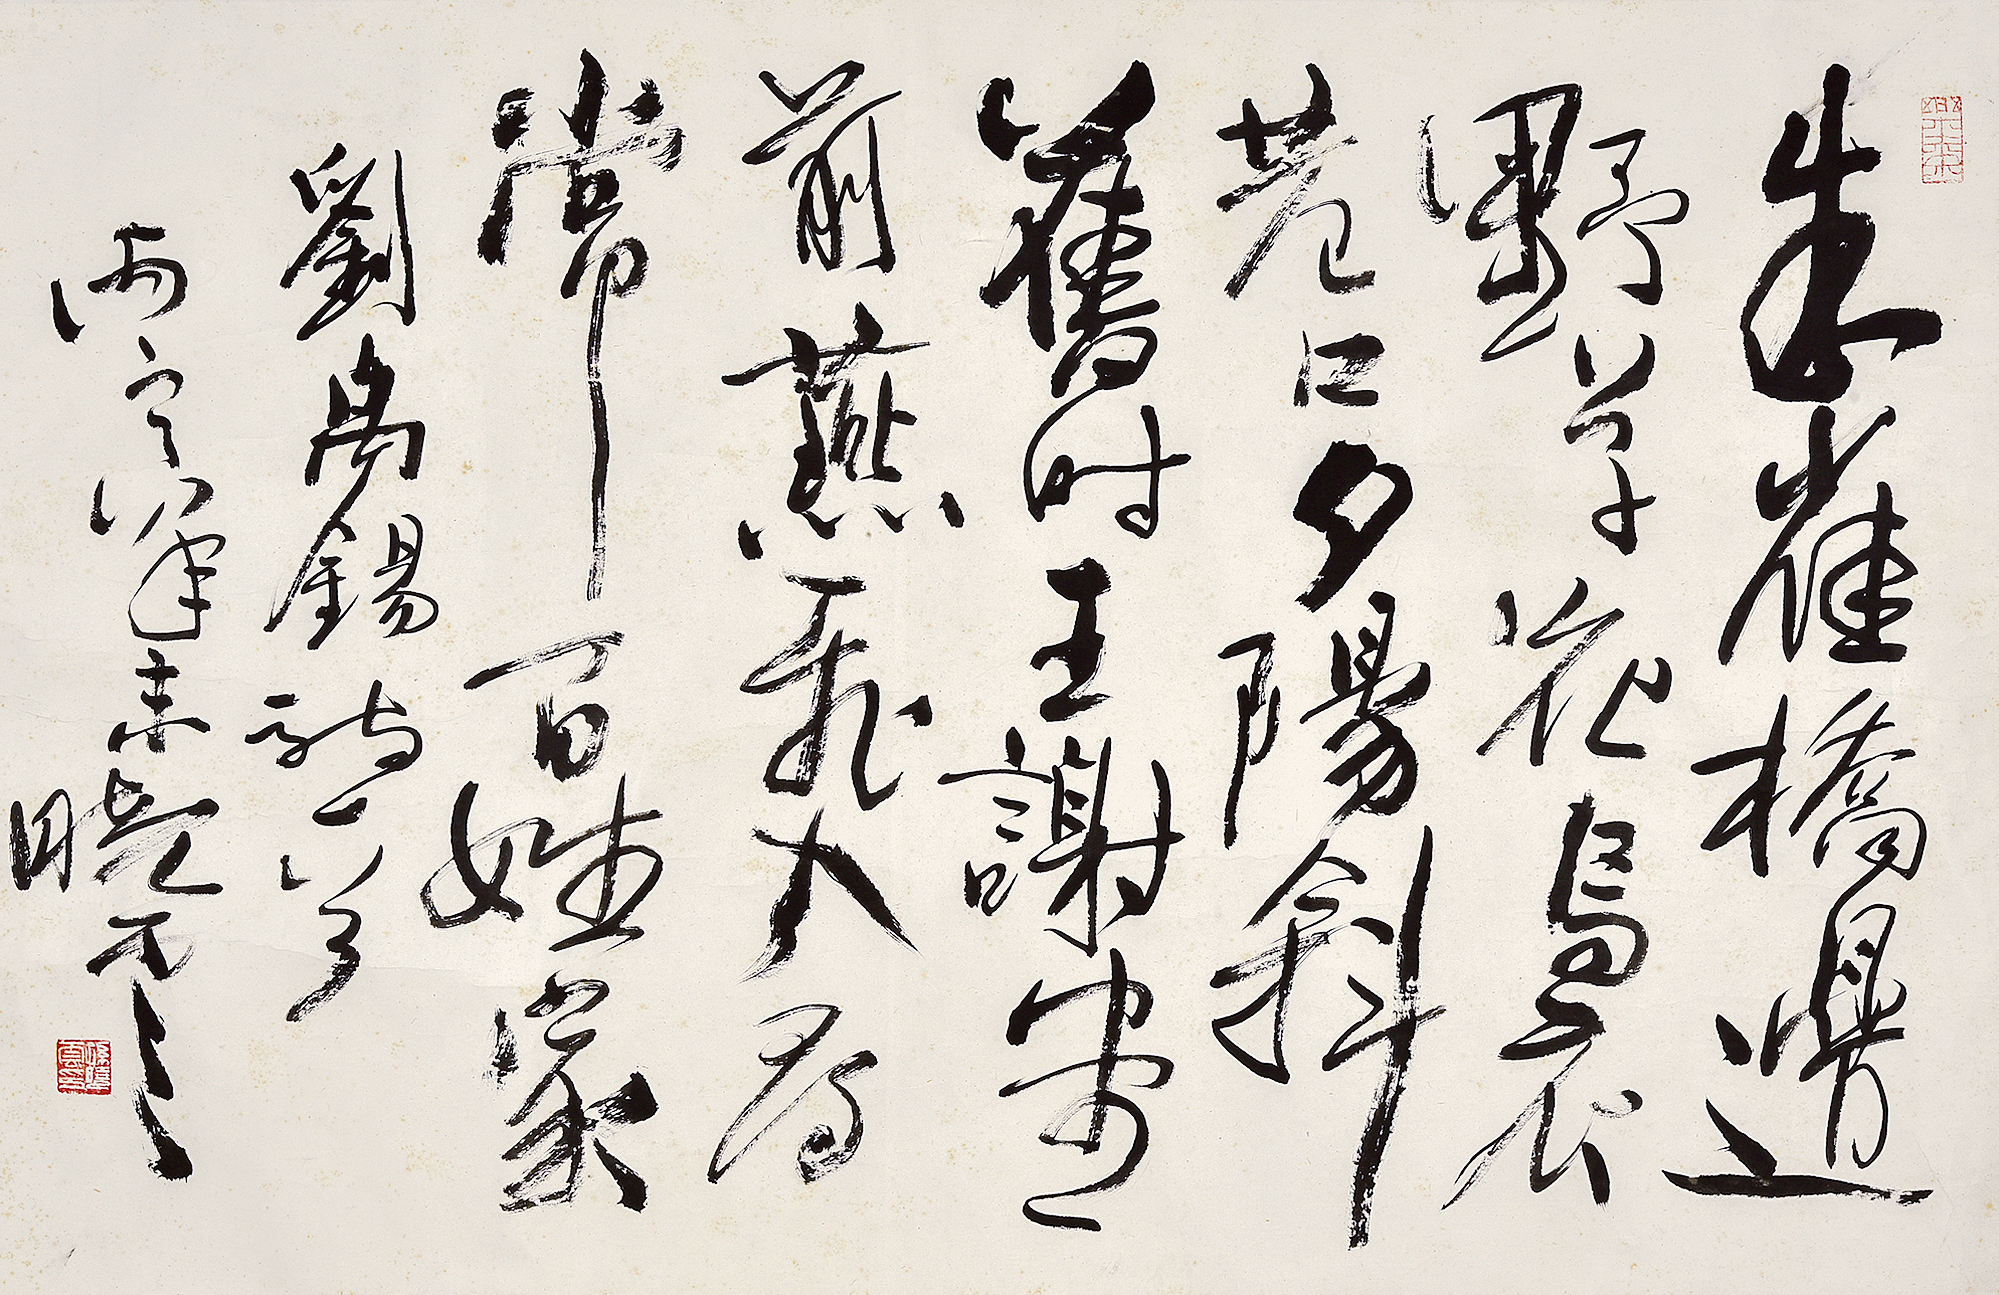 朱雀橋邊
野草花烏衣
巷口夕陽斜
舊時王謝堂
前燕飛入尋
常百姓家
劉禹錫詩一首
丙寅年末曉雲